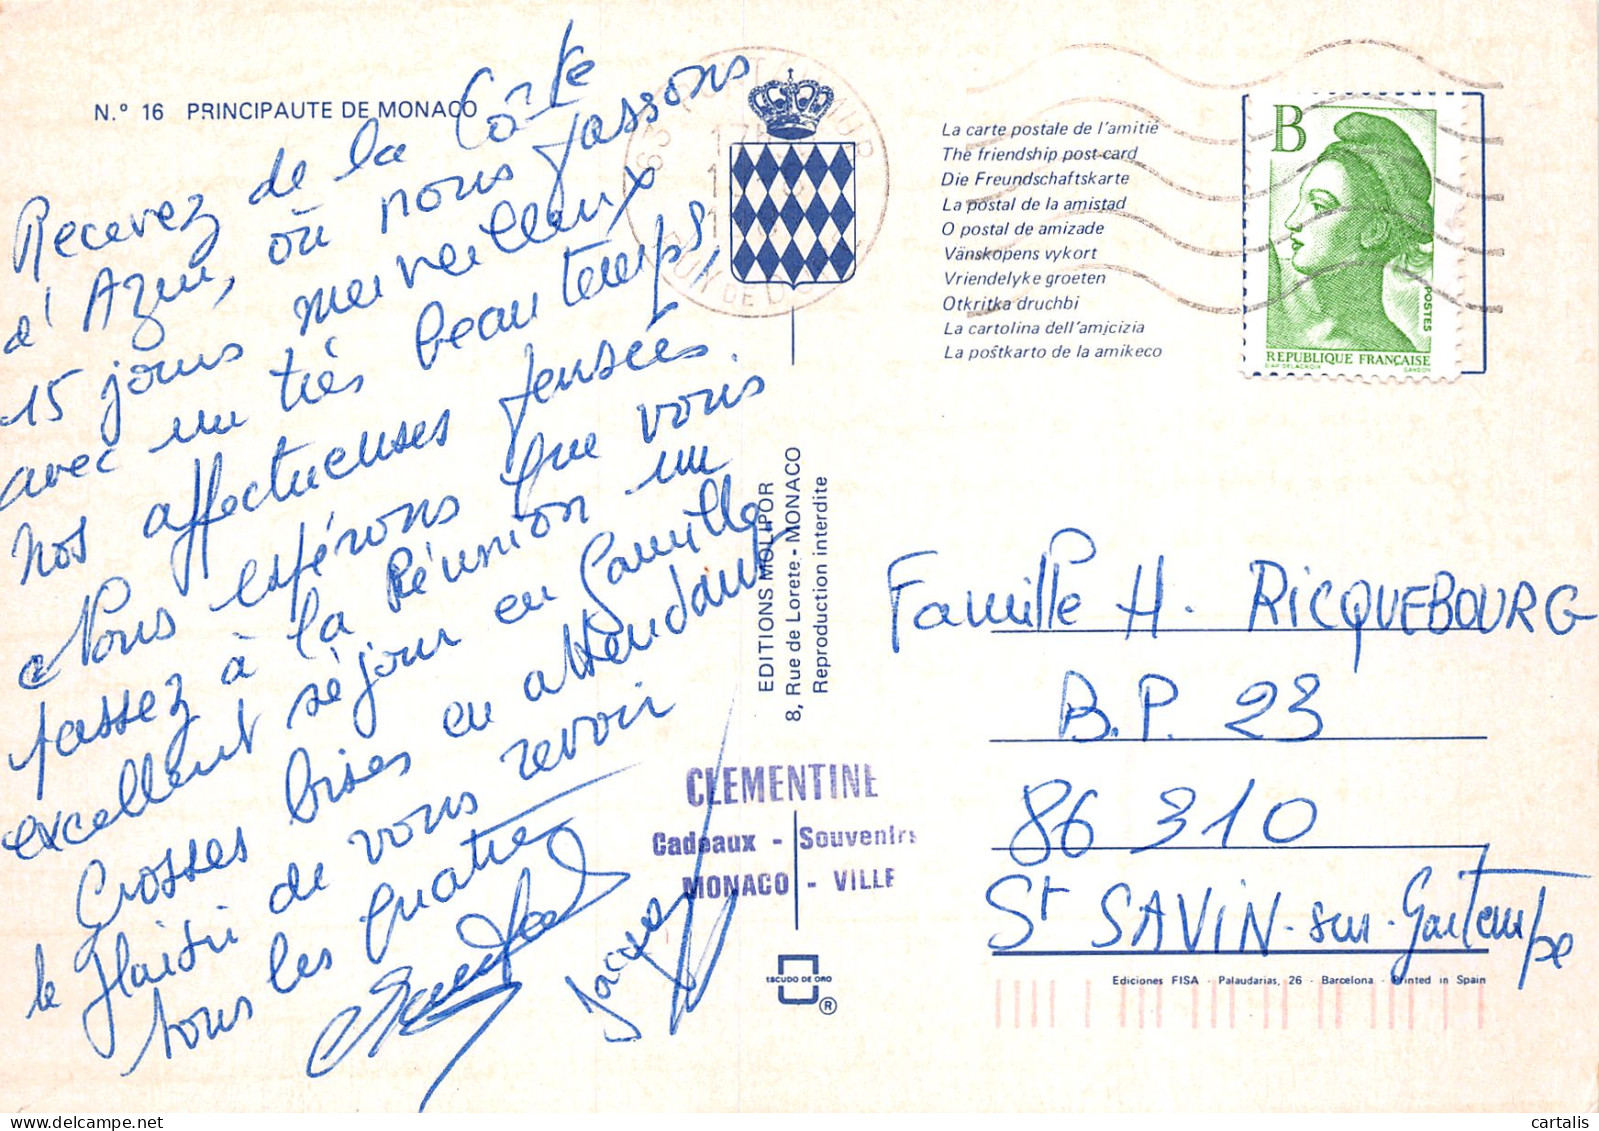 N.º 16 PRINCIPAUTE DE MONACO
Recevez de la Côte
d'Azur, où nous passons
15 jours merveilleux
avec un très beau temps,
nos affectueuses pensées.
Nous espérons que vous
passez à la Réunion un
excellent séjour en famille.
Grosses bises en attendant
le plaisir de vous revoir
tous les quatre
Jacques
EDITIONS MOLIPOR
8, Rue de Lorete - MONACO
Reproduction interdite
CLEMENTINE
Cadeaux - Souvenirs
MONACO - VILLE
ESCUDO DE ORO
®
La carte postale de l'amitié
The friendship post-card
Die Freundschaftskarte
La postal de la amistad
O postal de amizade
Vänskopens vykort
Vriendelyke groeten
Otkritka druchbi
La cartolina dell'amicizia
La poŝtkarto de la amikeco
B
POSTES
REPUBLIQUE FRANÇAISE
D'AP. DELACROIX GANDON
Famille H. RICQUEBOURG
B.P. 23
86 310
St SAVIN-sur-Gartempe
Ediciones FISA - Palaudarias, 26 - Barcelona - Printed in Spain
cartalis
www.delcampe.net